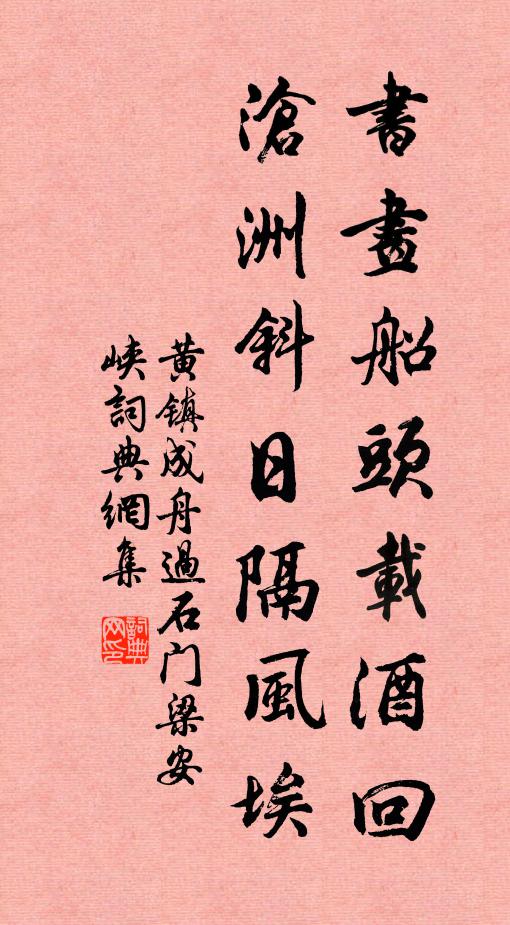 書畫船頭載酒回
滄洲斜日隔風埃
黄镇成舟過石门梁安
峽詞典網集
詞典网印